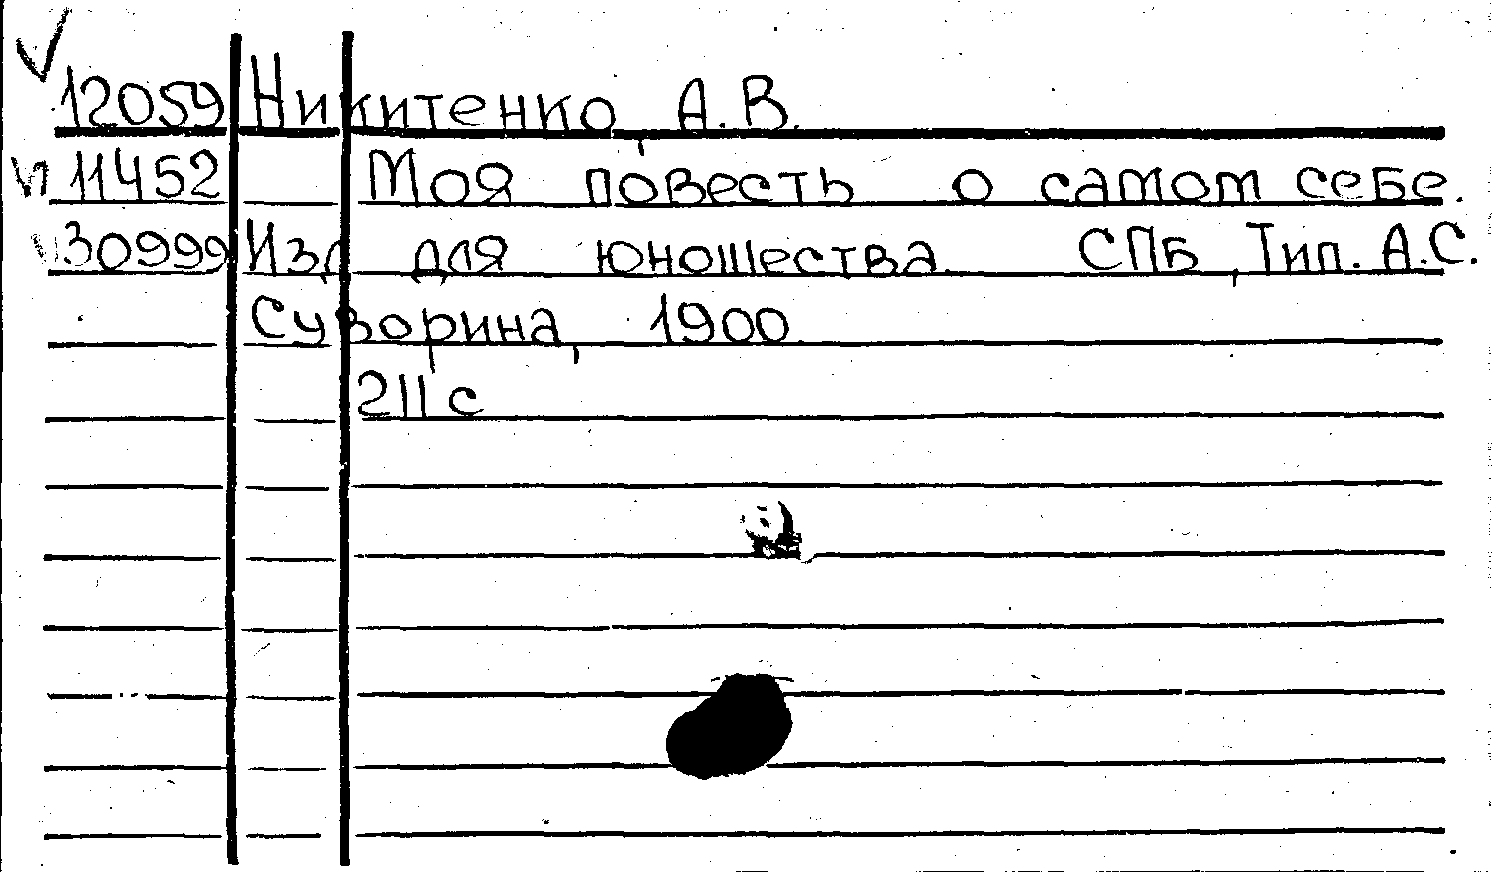 12059 Никитенко А.В.
11452 Моя повесть о самом себе.
30999 Изд для юношества. СПБ, Тип. А.С.
Суворина, 1900.
211 с